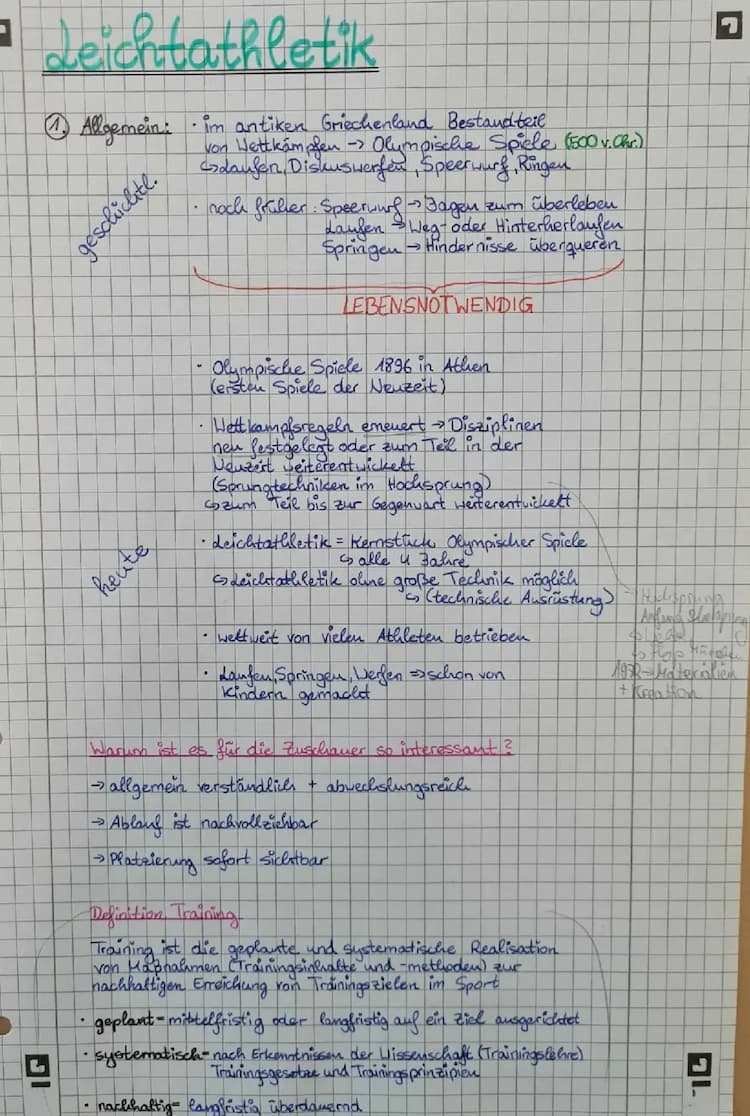 Leichtathletik
① Allgemein: · im antiken Griechenland Bestandteil
von Wettkämpfen → Olympische Spiele (500 v. Chr.)
↳ Laufen, Diskuswerfen, Speerwurf, Ringen
geschichtl.
· noch früher: Speerwurf → Jagen zum überleben
Laufen → Weg- oder Hinterherlaufen
Springen → Hindernisse überqueren
LEBENSNOTWENDIG
· Olympische Spiele 1896 in Athen
(ersten Spiele der Neuzeit)
· Wettkampfsregeln erneuert → Disziplinen
neu festgelegt oder zum Teil in der
Neuzeit weiterentwickelt
(Sprungtechniken im Hochsprung)
↳ zum Teil bis zur Gegenwart weiterentwickelt
heute
· Leichtathletik = Kernstück Olympischer Spiele
↳ alle 4 Jahre
↳ Leichtathletik ohne große Technik möglich
↳ (technische Ausrüstung)
- Hochsprung
Anfang
· weltweit von vielen Athleten betrieben
↳ Flop
· Laufen, Springen, Werfen ⇒ schon von
Kindern gemacht
Materialien
+ Kreation
Warum ist es für die Zuschauer so interessant?
→ allgemein verständlich + abwechslungsreich
→ Ablauf ist nachvollziehbar
→ Platzierung sofort sichtbar
Definition Training
Training ist die geplante und systematische Realisation
von Maßnahmen (Trainingsinhalte und -methoden) zur
nachhaltigen Erreichung von Trainingszielen im Sport
· geplant = mittelfristig oder langfristig auf ein Ziel ausgerichtet
· systematisch = nach Erkenntnissen der Wissenschaft (Trainingslehre)
Trainingsgesetze und Trainingsprinzipien
· nachhaltig = langfristig überdauernd